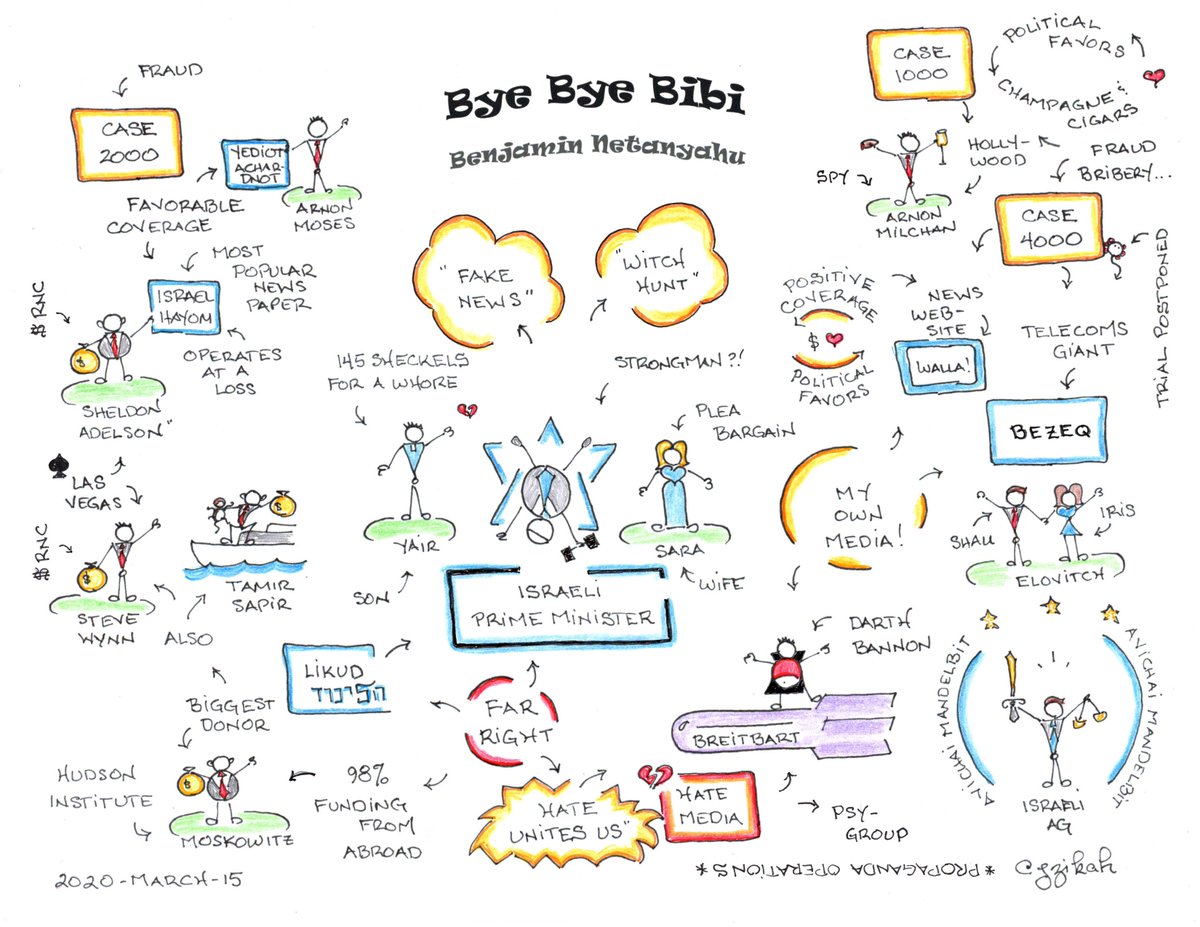 Bye Bye Bibi
Benjamin Netanyahu
FRAUD
CASE
2000
YEDIOT
ACHAR-
DNOT
ARNON
MOSES
FAVORABLE
COVERAGE
MOST
POPULAR
NEWS
PAPER
ISRAEL
HAYOM
$ RNC
OPERATES
AT A
LOSS
SHELDON
ADELSON"
LAS
VEGAS
$ RNC
STEVE
WYNN
TAMIR
SAPIR
ALSO
BIGGEST
DONOR
HUDSON
INSTITUTE
MOSKOWITZ
98%
FUNDING
FROM
ABROAD
2020-MARCH-15
"FAKE
NEWS"
"WITCH
HUNT"
145 SHECKELS
FOR A WHORE
STRONGMAN?!
PLEA
BARGAIN
YAIR
SON
SARA
WIFE
ISRAELI
PRIME MINISTER
LIKUD
הליכוד
FAR
RIGHT
"HATE
UNITES US"
HATE
MEDIA
BREITBART
DARTH
BANNON
PSY-
GROUP
*PROPAGANDA OPERATIONS*
CASE
1000
POLITICAL
FAVORS
CHAMPAGNE &
CIGARS
HOLLY-
WOOD
SPY
ARNON
MILCHAN
FRAUD
BRIBERY...
CASE
4000
TRIAL POSTPONED
POSITIVE
COVERAGE
$
POLITICAL
FAVORS
NEWS
WEB-
SITE
WALLA!
TELECOMS
GIANT
BEZEQ
MY
OWN
MEDIA!
SHAUL
IRIS
ELOVITCH
AVICHAI MANDELBIT
AVICHAI MANDELBIT
ISRAELI
AG
©gzikah